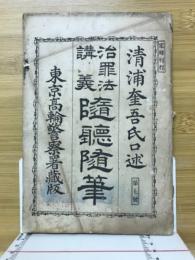 清浦奎吾氏口述
治罪法
講義
隨聽隨筆
東京高輪警察署蔵版